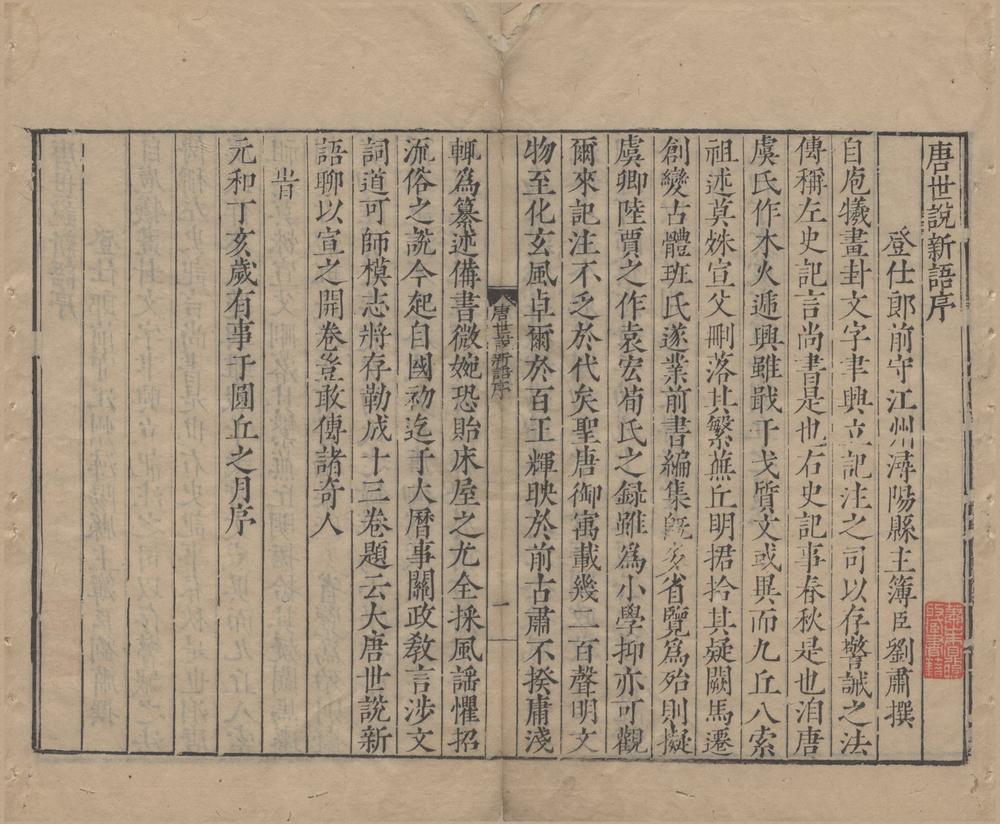 唐世說新語序
登仕郎前守江州潯陽縣主簿臣劉肅撰
自庖犧畫卦文字聿興立記注之司以存警誡之法
傳稱左史記言尚書是也右史記事春秋是也洎唐
虞氏作木火遞興雖戢干戈質文或異而九丘八索
祖述莫姝宣父刪落其繁蕪丘明捃拾其疑闕馬遷
創變古體班氏遂業前書編集旣多省覽爲殆則擬
虞卿陸賈之作袁宏荀氏之錄雖爲小學抑亦可觀
爾來記注不乏於代矣聖唐御寓載幾二百聲明文
物至化玄風卓爾於百王輝映於前古肅不揆庸淺
輒爲纂述備書微婉恐貽床屋之尤全採風謠懼招
流俗之說今起自國初迄于大曆事關政教言涉文
詞道可師模志將存勸成十三卷題云大唐世說新
語聊以宣之開卷豈敢傳諸奇人
旹
元和丁亥歲有事于圓丘之月序
唐世說新語序
一